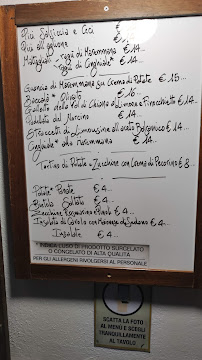 Pici Salsiccia e Ceci €
Pici all'aglione €
Maltagliati Sugo di Maremmana €14..
Sugo di Cinghiale* €14..
Guancia di Maremmana su Crema di Patate €15..
€16..
di Chiana a Limone e Finocchietto €14..
del Norcino €14..
Straccetti di Limousine all'aceto Balsamico €14..
Cinghiale* alla maremmana €14..
Tortino di Patate e Zucchine con Crema di Pecorino €8..
Patate* €4..
Bietola Saltata €4..
Zucchine €4..
Insalata di Cavolo con €4..
Insalate €4..
* INDICA L'USO DI PRODOTTO SURGELATO
O CONGELATO DI ALTA QUALITÀ
PER GLI ALLERGENI RIVOLGERSI AL PERSONALE
SCATTA LA FOTO
AL MENÙ E SCEGLI
TRANQUILLAMENTE
AL TAVOLO